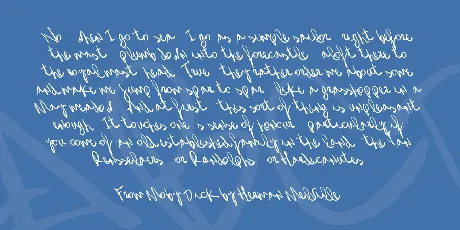 No when I go to sea I go as a simple sailor right before
the mast plumb down into the forecastle aloft there to
the royal mast head True they rather order me about some
and make me jump from spar to spar like a grasshopper in a
May meadow And at first this sort of thing is unpleasant
enough It touches one s sense of honour particularly if
you come of an old established family in the land the Van
Rensselaers or Randolphs or Hardicanutes
From Moby Dick by Herman Melville